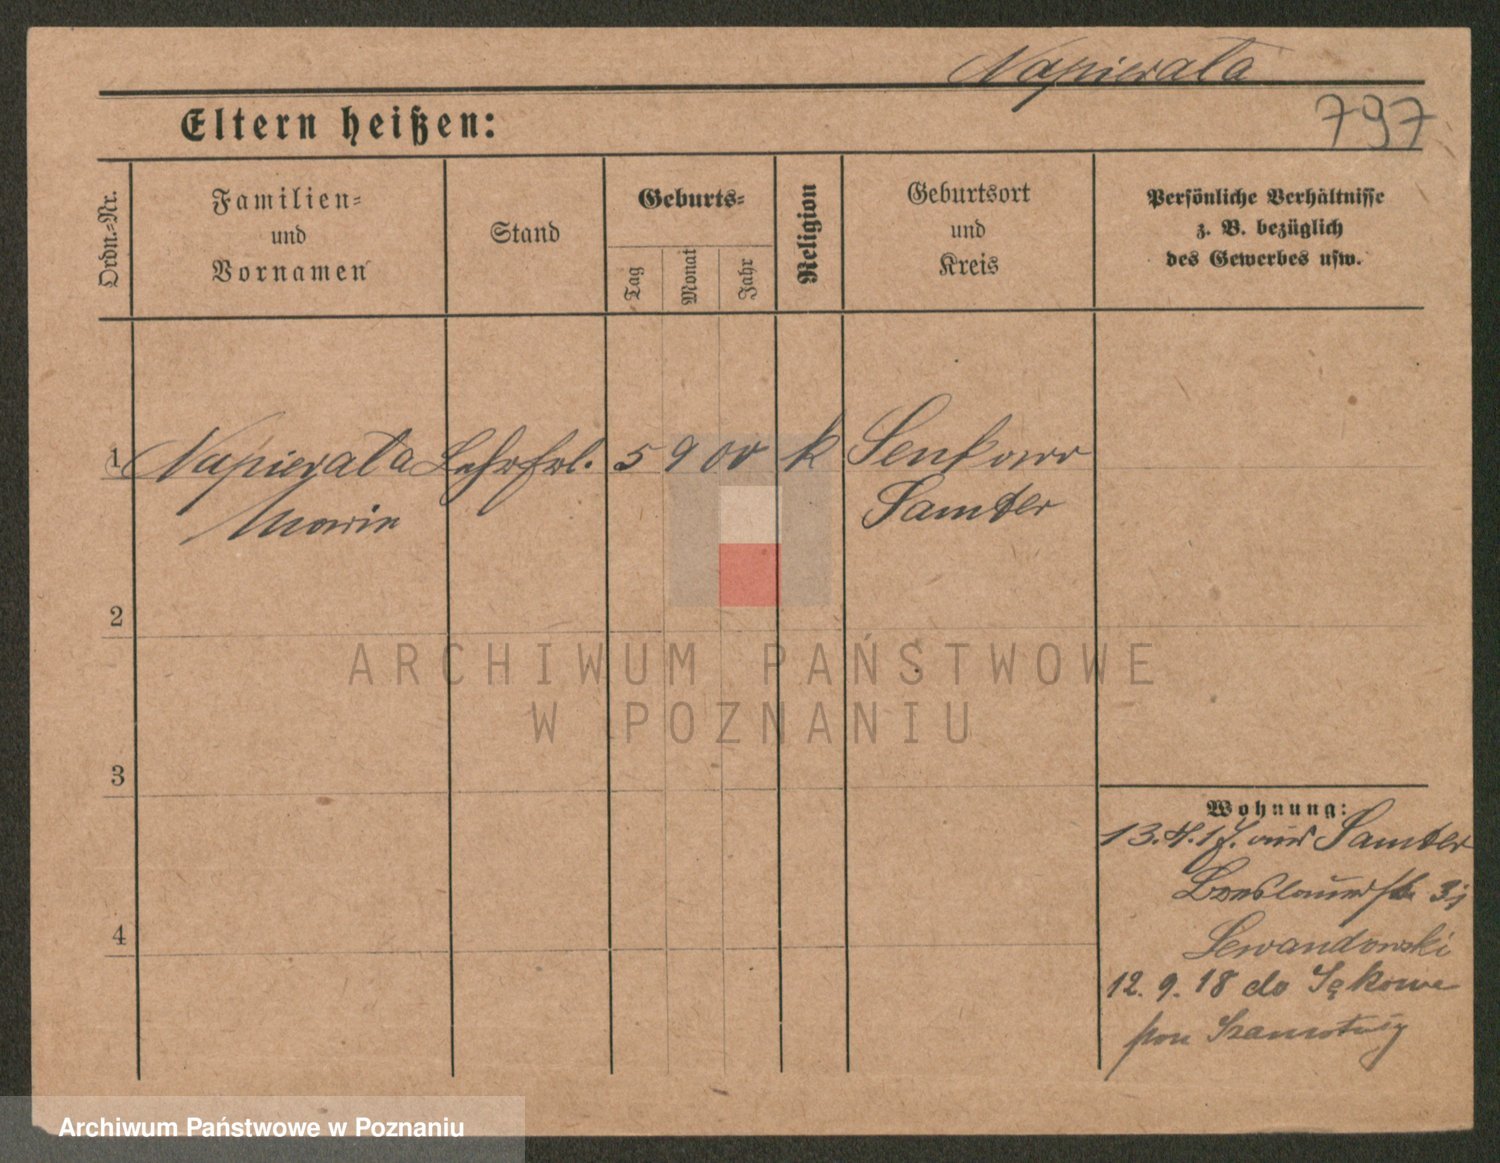 Napierala
797
Eltern heißen:
Ordn.-Nr.
Familien-
und
Vornamen
Stand
Geburts-
Tag
Monat
Jahr
Religion
Geburtsort
und
Kreis
Persönliche Verhältnisse
z. B. bezüglich
des Gewerbes usw.
1 Napierala Lehrfrl. 5 9 00 k Senkowo
Marie Samter
2
3
4
Wohnung:
13.4.17. aus Samter
Breslauerstr. 3
Lewandowski
12. 9. 18 do Sękowa
pow Szamotuły
ARCHIWUM PAŃSTWOWE
W POZNANIU
Archiwum Państwowe w Poznaniu